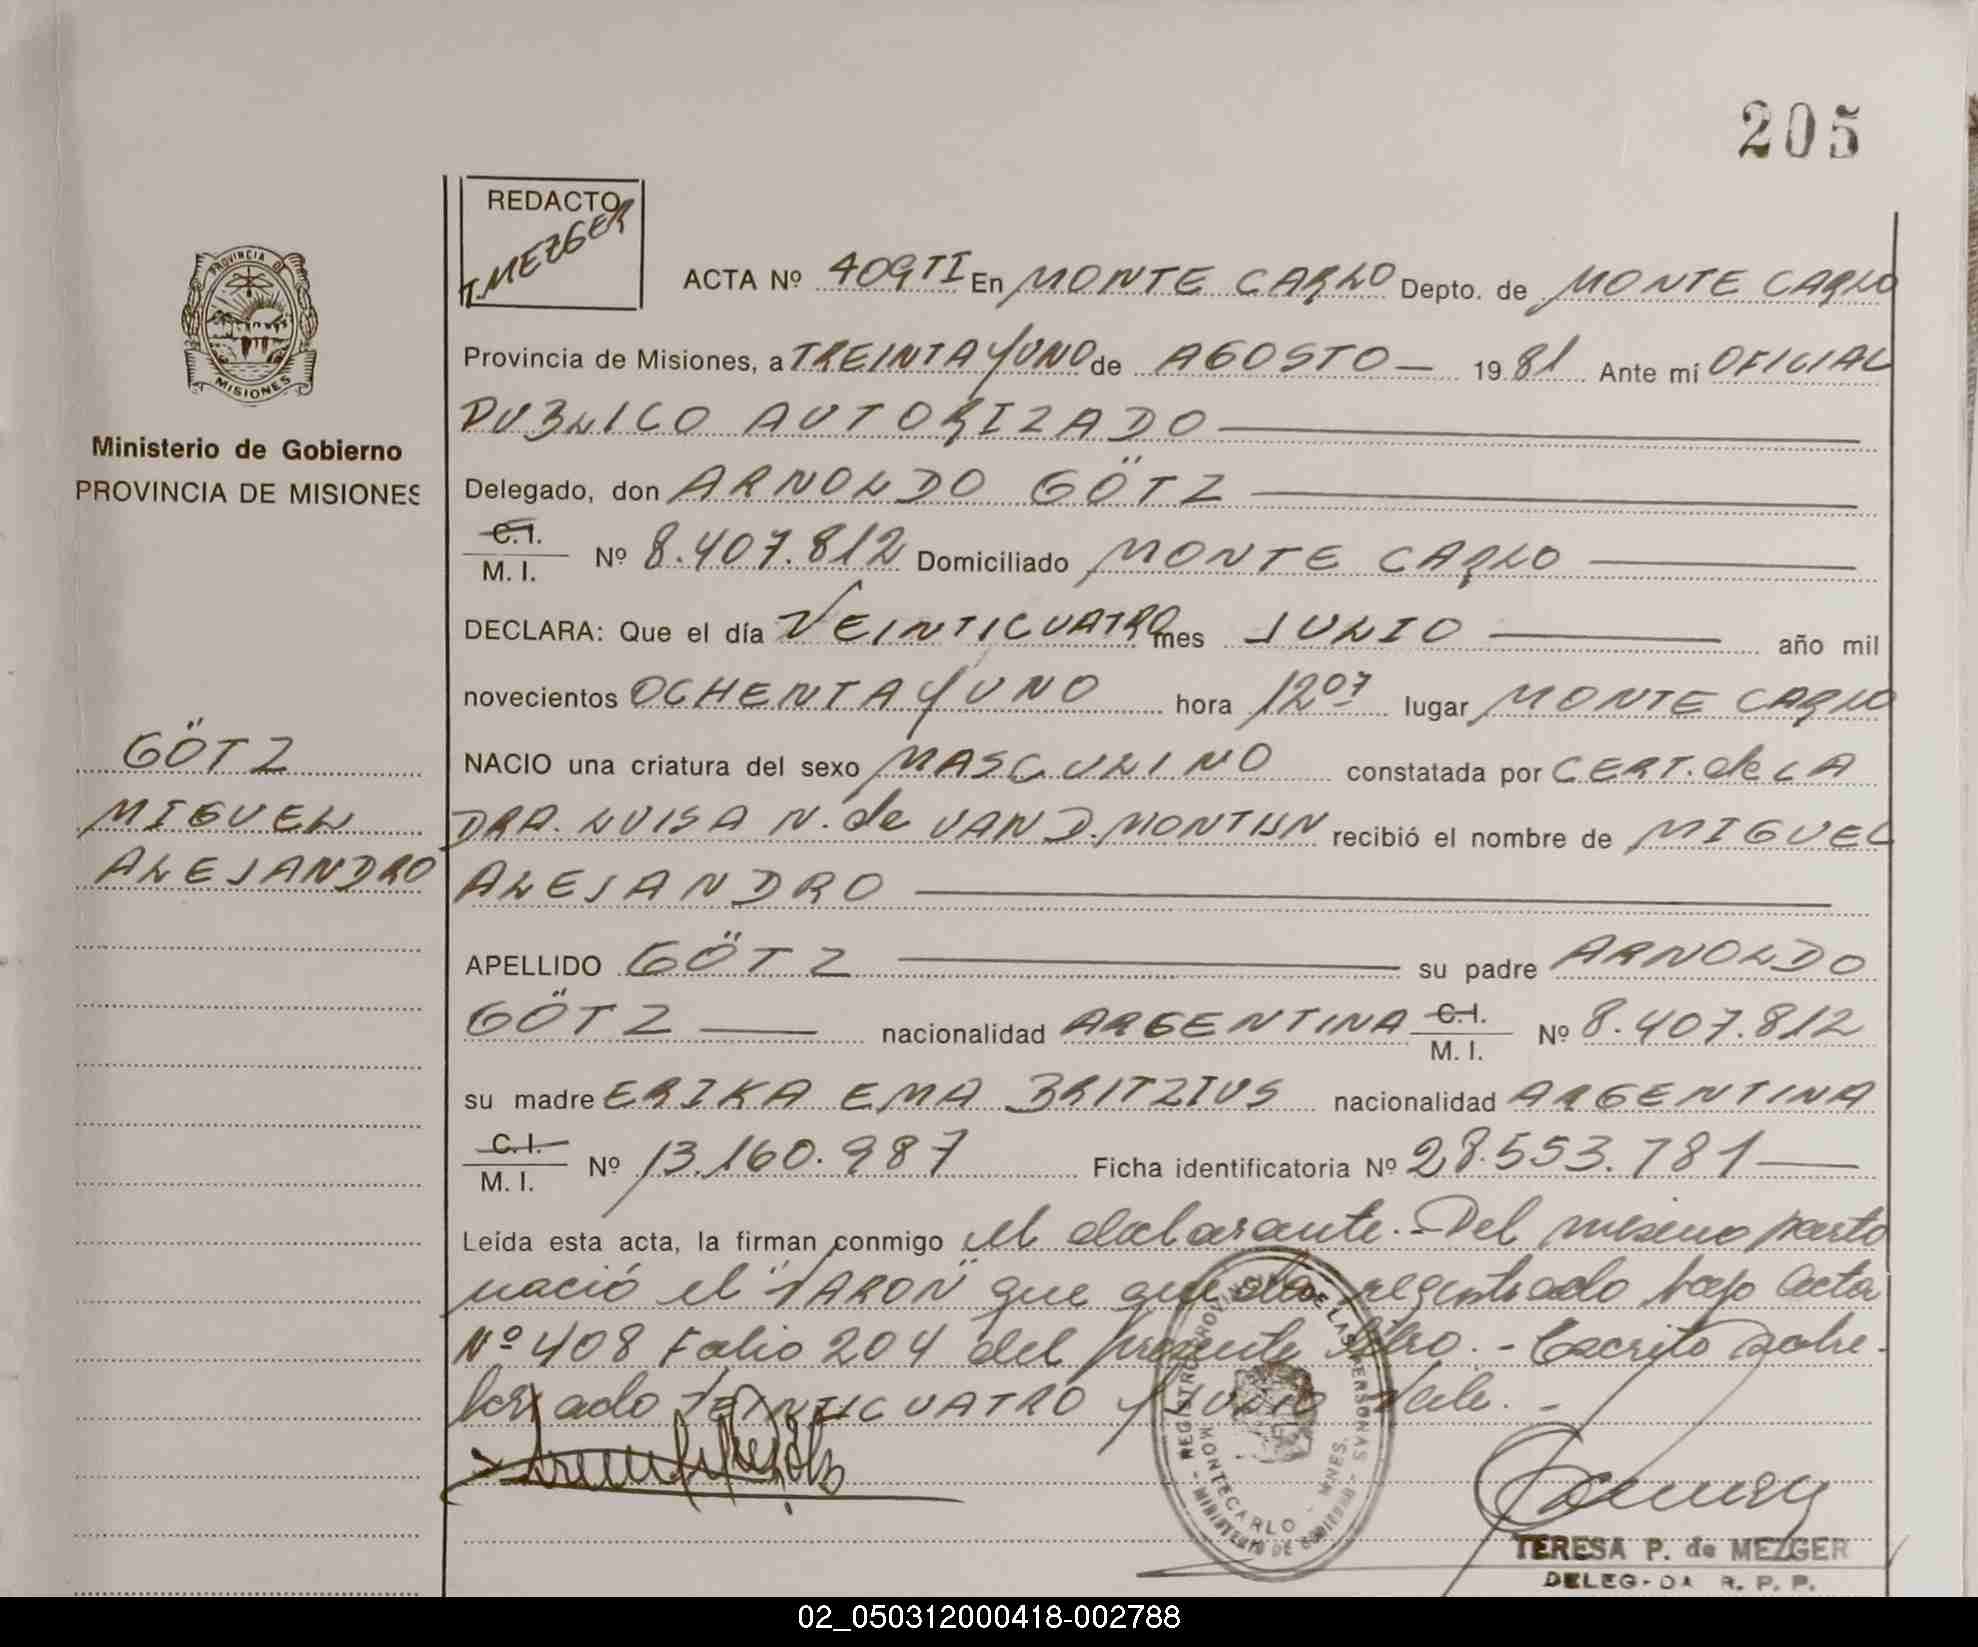 205
REDACTO
T. MEZGER
PROVINCIA DE
MISIONES
Ministerio de Gobierno
PROVINCIA DE MISIONES
ACTA Nº 409TI En MONTE CARLO Depto. de MONTE CARLO
Provincia de Misiones, a TREINTA Y UNO de AGOSTO — 1981 Ante mí OFICIAL
PUBLICO AUTORIZADO
Delegado, don ARNOLDO GÖTZ
C.I.
M. I. Nº 8.407.812 Domiciliado MONTE CARLO
DECLARA: Que el día VEINTICUATRO mes JULIO año mil
novecientos OCHENTA Y UNO hora 12⁰⁷ lugar MONTE CARLO
NACIO una criatura del sexo MASCULINO constatada por CERT. de LA
DRA. LUISA N. de VAN D. MONTIJN recibió el nombre de MIGUEL
ALEJANDRO
APELLIDO GÖTZ su padre ARNOLDO
GÖTZ nacionalidad ARGENTINA C.I. M. I. Nº 8.407.812
su madre ERIKA EMA BRITZIUS nacionalidad ARGENTINA
C.I.
M. I. Nº 13.160.987 Ficha identificatoria Nº 28.553.781
Leída esta acta, la firman conmigo el declarante.- Del mismo parto
nació el "VARON" que queda registrado bajo Acta
Nº 408 Folio 204 del presente libro.- Escrito sobre-
borrado VEINTICUATRO y JULIO Vale.-
GÖTZ
MIGUEL
ALEJANDRO
REGISTRO PROVINCIAL DE LAS PERSONAS
MONTECARLO - MNES.
MINISTERIO DE GOBIERNO
TERESA P. de MEZGER
DELEGADA R. P. P.
02_050312000418-002788